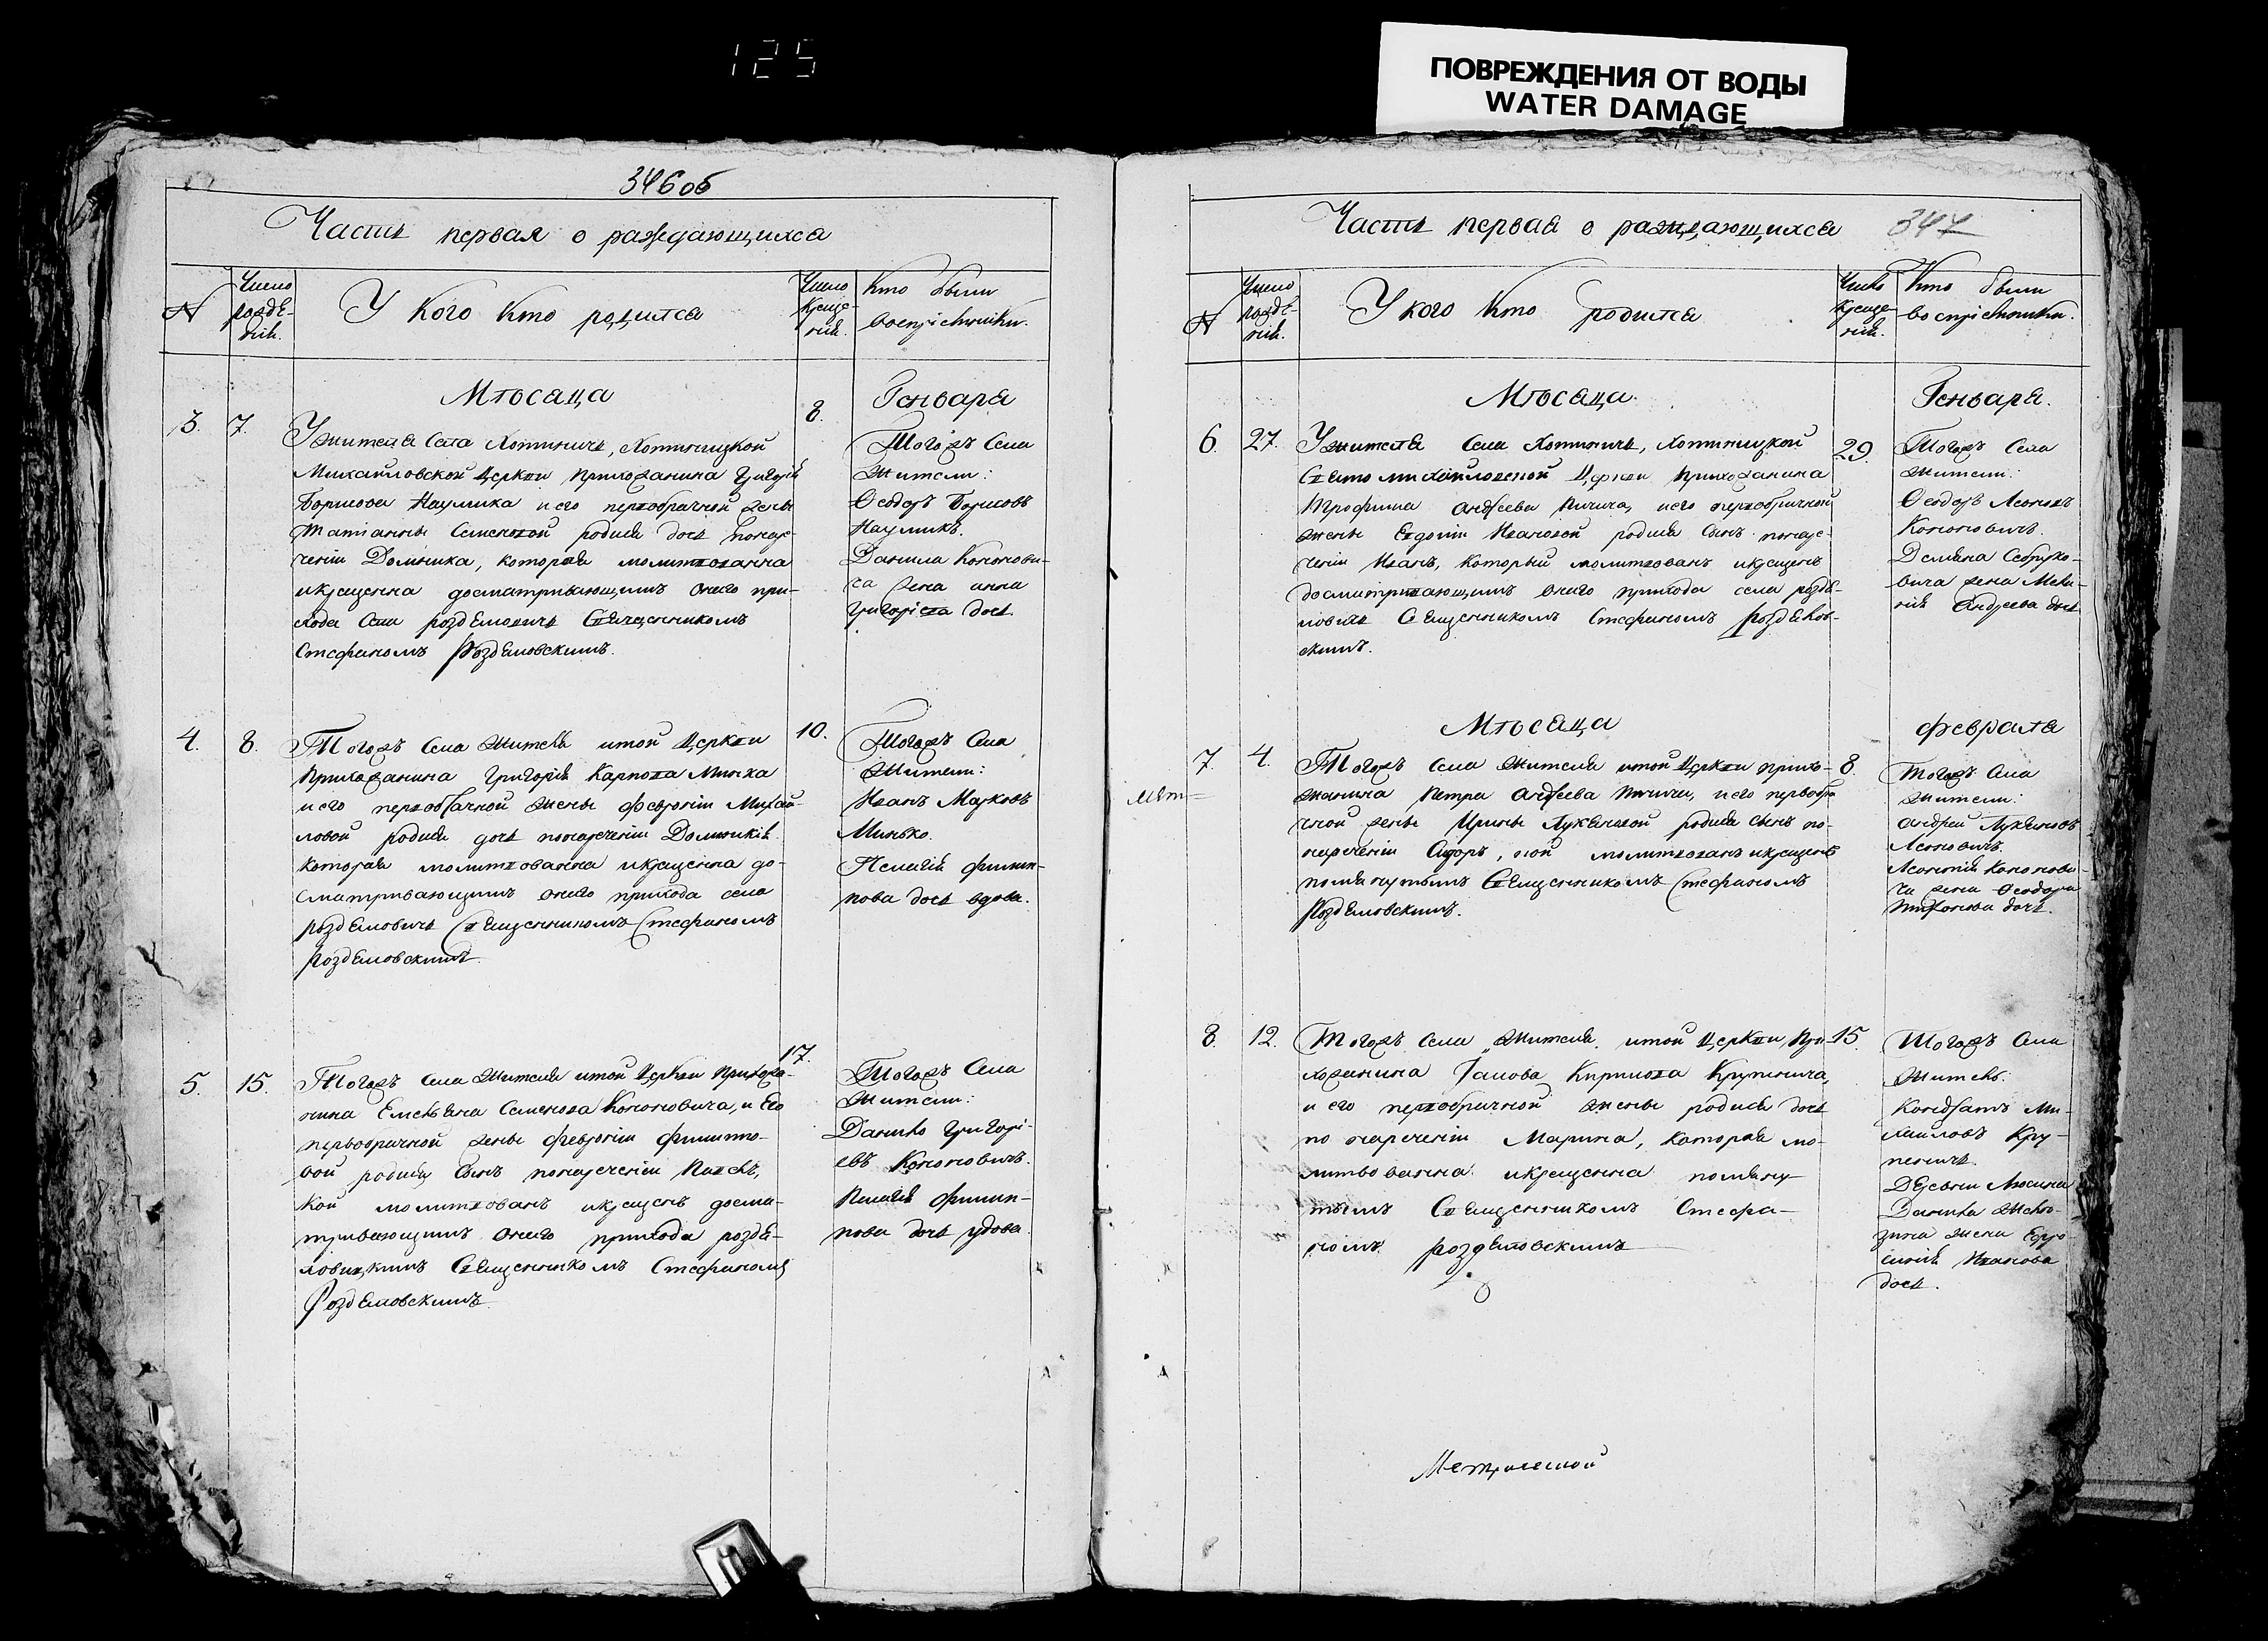 125
ПОВРЕЖДЕНИЯ ОТ ВОДЫ
WATER DAMAGE
346об
Часть первая о раждающихся
№
Число рождѣнія.
У Кого Кто родился
Число Крещенія.
Кто были воспріемники.
Мѣсяца
Генваря
3.
7.
Ужителя Села Хотиничь, Хотиницкой
Михайловской Церкви Прихожанина Григорія
Борисова Наумика и его первобрачной жены
Татіанны Семеновой родися дочь понаре-
ченіи Домника, которая молитвованна
икрещенна досматривающимъ онаго при-
хода Села роздѣловичь Священникомъ
Стефаномъ Роздѣловскимъ.
8.
Тогожъ Села
Жители:
Ѳеодоръ Борисовъ
Наумикъ.
Данила Кононови-
ча жена анна
Григорієва дочь
4.
8.
Тогожъ Села Жителя итой Церкви
Прихожанина Григорія Карпова Минка
и его первобрачной Жены Февроніи Михай-
ловой родися дочь понареченіи Домникія
которая молитвованна икрещенна до-
сматривающимъ онаго прихода села
роздѣловичь Священникомъ Стефаномъ
Роздѣловскимъ.
10.
Тогожъ Села
Жители:
Иванъ Марковъ
Минько.
Пелагія Филип-
пова дочь вдова.
5.
15.
Тогожъ Села Жителя итой Церкви Прихожа-
нина Емельяна Семенова Кононовича, и Его
первобрачной жены Февроніи Филиппо-
вой родися Сынъ понареченіи Павелъ,
кой молитвованъ икрещенъ досма-
тривающимъ онаго прихода роздѣ-
ловицкимъ Священникомъ Стефаномъ
Роздѣловскимъ.
17.
Тогожъ Села
Жители:
Данило Григорі-
евъ Кононовичъ.
Пелагія Филип-
пова дочь удова
Часть первая о раждающихся
347
№
Число рождѣнія.
У кого Кто родился
Число Крещенія.
Кто были воспріемники.
Мѣсяца
Генваря.
6.
27.
Ужителя Села Хотиничь, Хотиницкой
Святомихайловской Церкви Прихожанина
Трофима Андреева Пичича, иего первобрачной
жены Евдокіи Ивановой родися Сынъ понаре-
ченіи Иванъ, Который молитвованъ икрещенъ
досматривающимъ онаго прихода села роздѣ-
ловичь Священникомъ Стефаномъ Роздѣлов-
скимъ.
29.
Тогожъ Села
Жители:
Ѳеодоръ Леоновъ
Кононовичъ.
Демяна
жена Мела-
нія Андреева дочь
Мѣсяца
Февраля
7.
4.
Тогожъ Села Жителя итой Церкви прихо-
жанина Петра Андреева Пичича, иего первобра
чной жены Ирины Лукьяновой родися сынъ по-
нареченіи Сидоръ, кой молитвованъ икрещенъ
помянутымъ Священникомъ Стефаномъ
Роздѣловскимъ.
8.
Тогожъ Села
Жители:
Андрей Лукьяновъ
Леоновичъ.
Леонтія Кононови-
ча жена Ѳеодора
дочь.
8.
12.
Тогожъ Села Жителя итой Церкви При-
хожанина Іакова Кирилова Крупенича,
и его первобрачной жены родися дочь
по нареченіи Марина, Которая мо-
литвованна икрещенна помяну-
тымъ Священникомъ Стефа-
номъ роздѣловскимъ
15.
Тогожъ Села
Житель.
Кондратъ Ми-
хайловъ Кру-
пеничь.
Деревни Люсина
Данила
жена Евфро-
синія Иванова
дочь.
Метрической